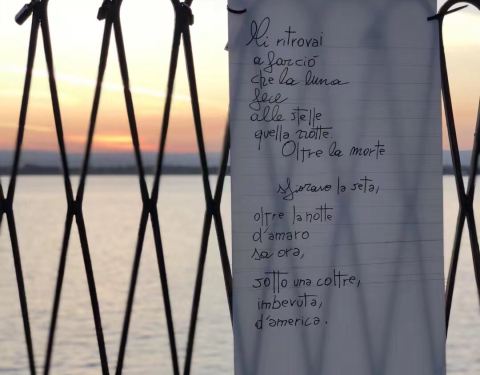 Mi ritrovai
a far ciò
che la luna
fece
alle stelle
quella notte.
Oltre la morte
sfioravo la seta,
oltre la notte
d'amaro
sa ora,
sotto una coltre,
imbevuta,
d'america.